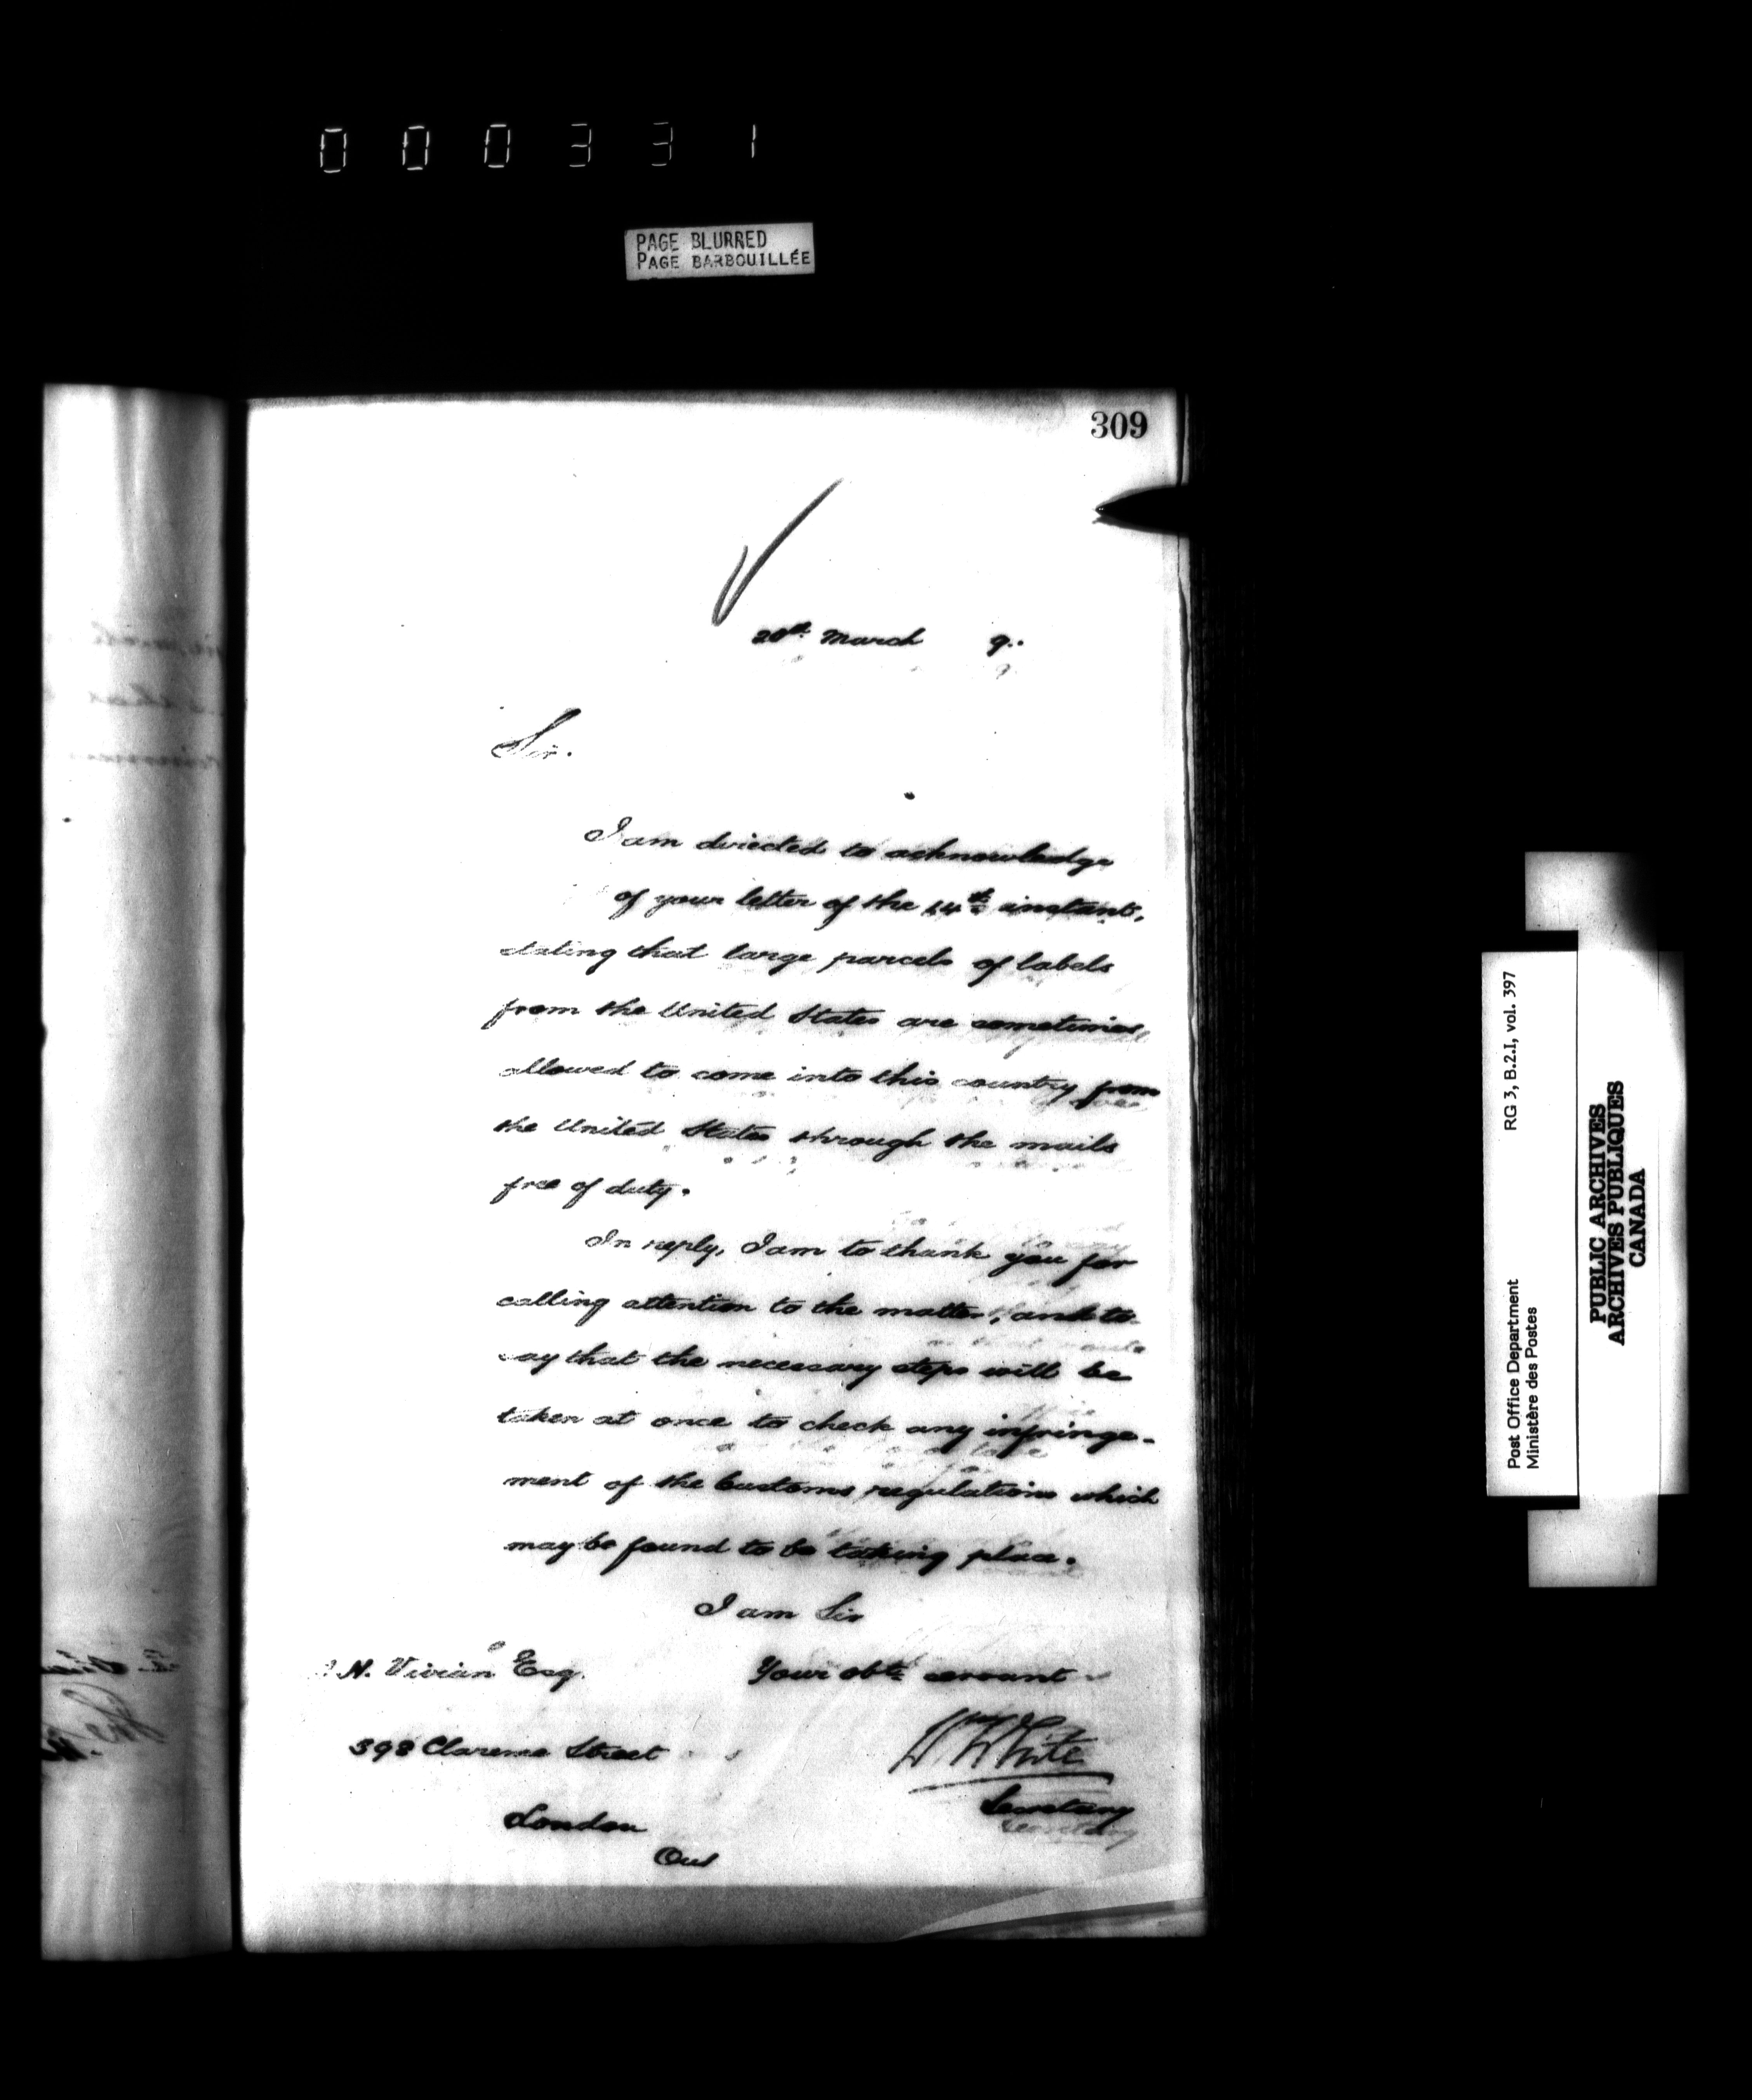 000331
PAGE BLURRED
PAGE BARBOUILLÉE
309
20th March 9.
Sir.
I am directed to acknowledge
of your letter of the 14th instant,
stating that large parcels of labels
from the United States are sometimes
allowed to come into this country from
the United States through the mails
free of duty.
In reply, I am to thank you for
calling attention to the matter, and to
say that the necessary steps will be
taken at once to check any infringe-
ment of the Customs regulations which
may be found to be taking place.
I am Sir
Your obt. servant
N. Vivian Esq.
W White
Secretary
398 Clarence Street
London
Ont
RG 3, B.2.I, vol. 397
Post Office Department
Ministère des Postes
PUBLIC ARCHIVES
ARCHIVES PUBLIQUES
CANADA